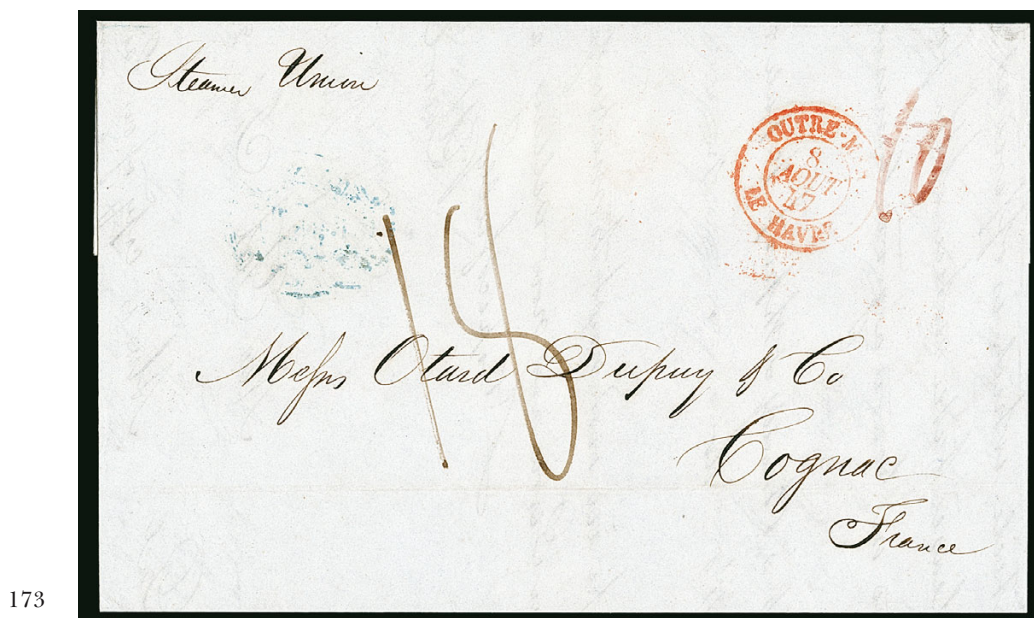 Steamer Union
OUTRE-M
8
AOUT
47
LE HAVRE
10
Messrs Otard Dupuy & Co
Cognac
France
173